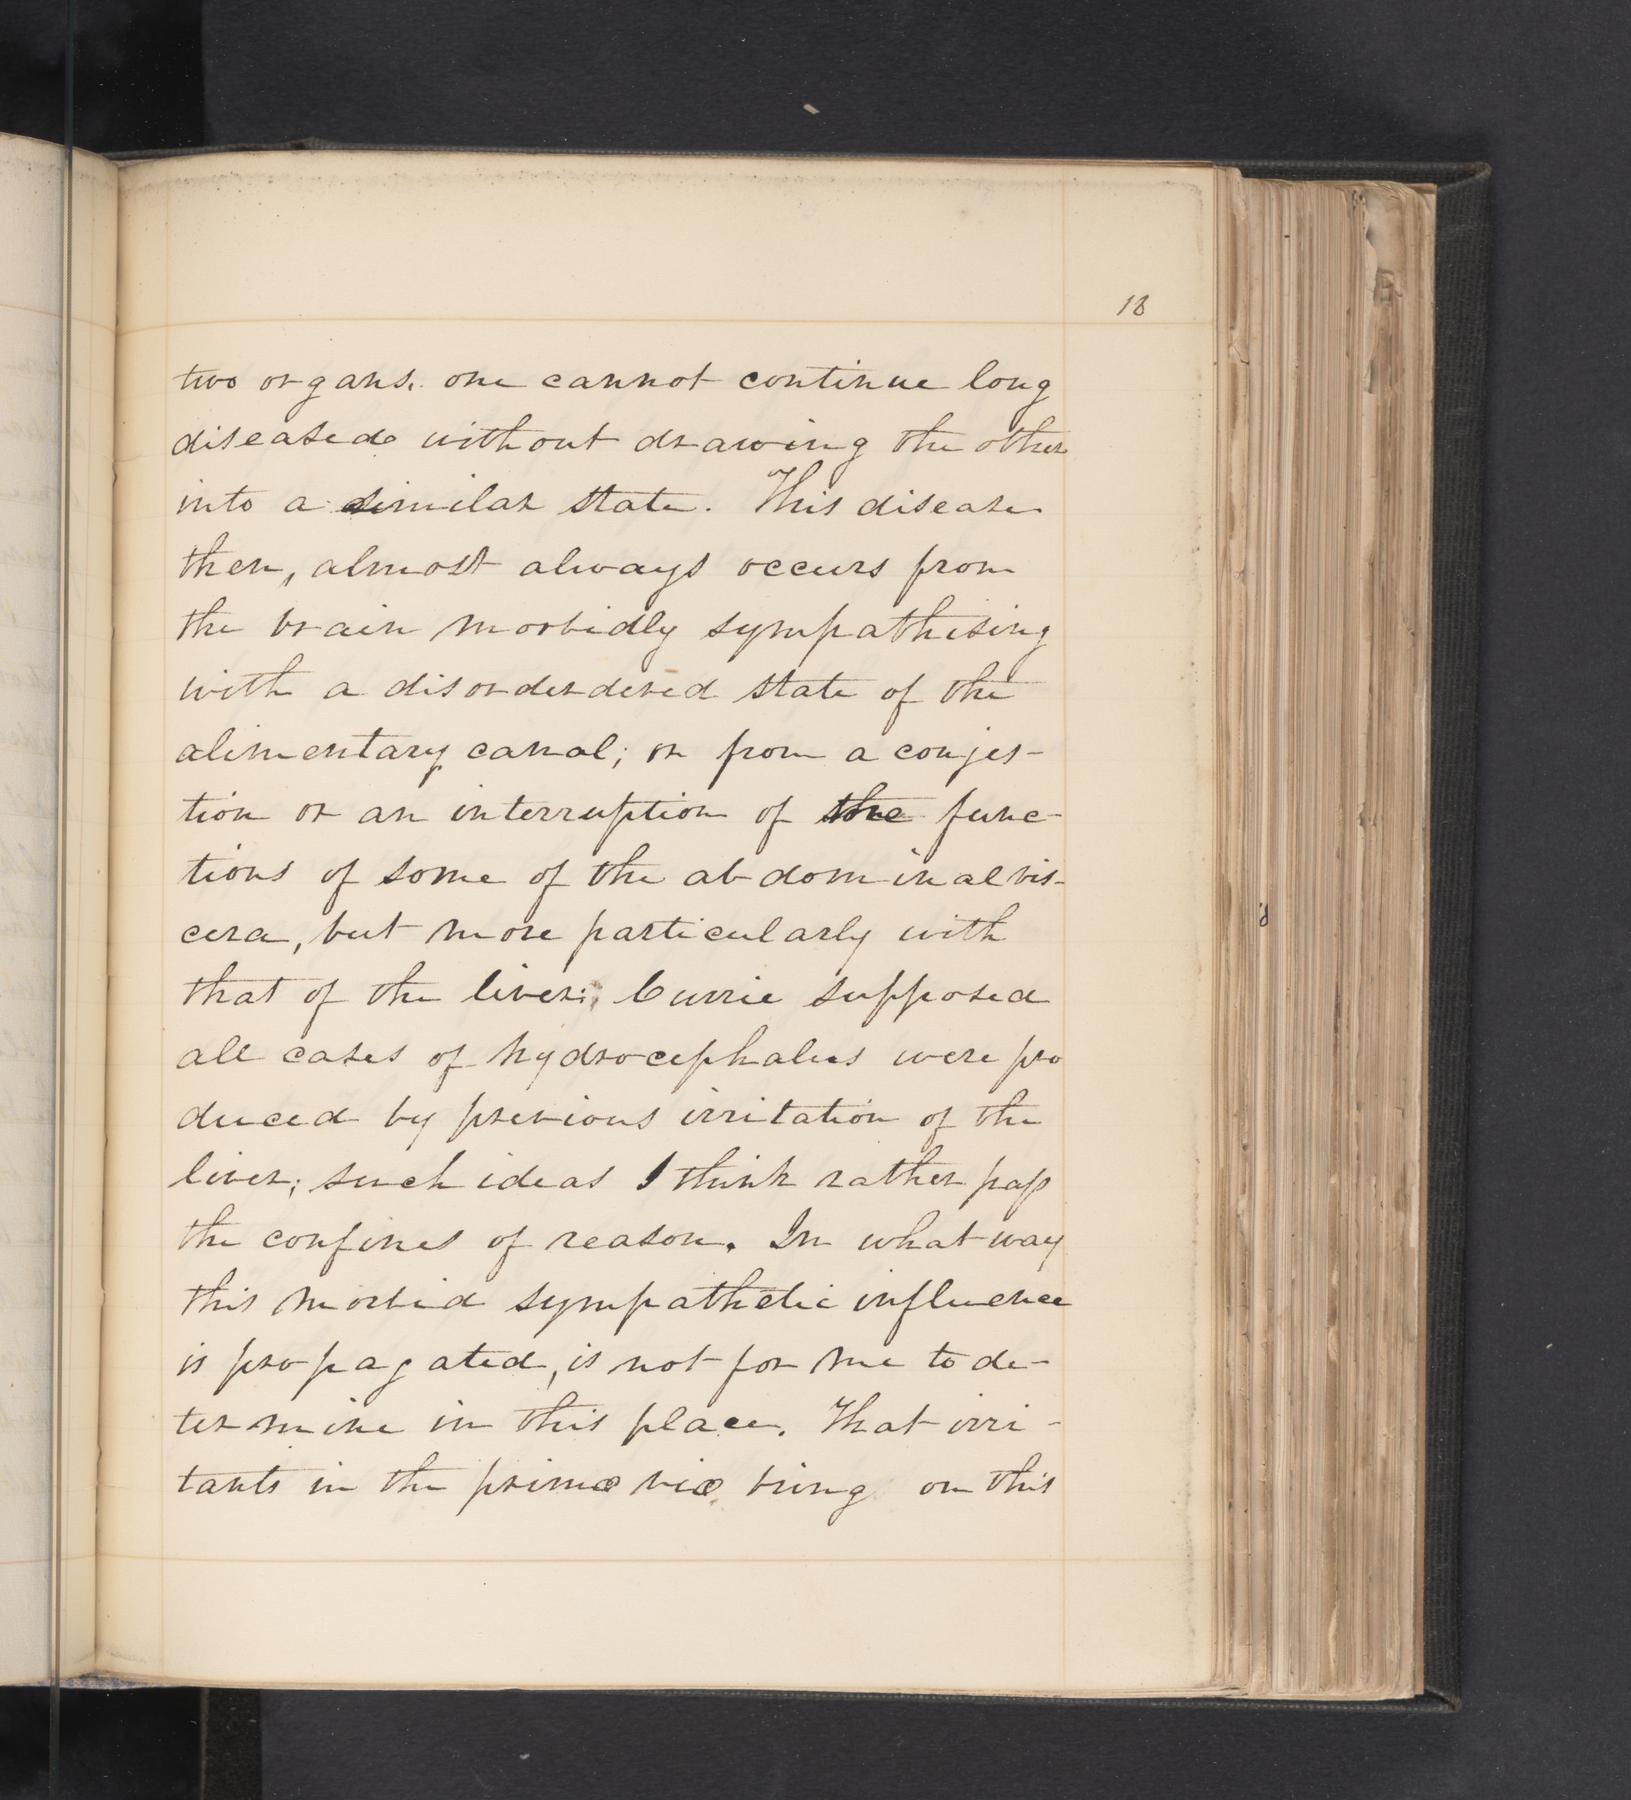 18
two organs. one cannot continue long
diseased without drawing the other
into a similar state. This disease
then, almost always occurs from
the brain morbidly sympathising
with a disorderdered state of the
alimentary canal; or from a conjes-
tion or an interruption of the func-
tions of some of the abdominal vis-
cera, but more particularly with
that of the liver; Currie supposed
all cases of hydrocephalus were pro
duced by previous irritation of the
liver; such ideas I think rather pass
the confines of reason. In what way
this morbid sympathetic influence
is propagated, is not for me to de-
termine in this place. That irri-
tants in the primæ viæ bring on this